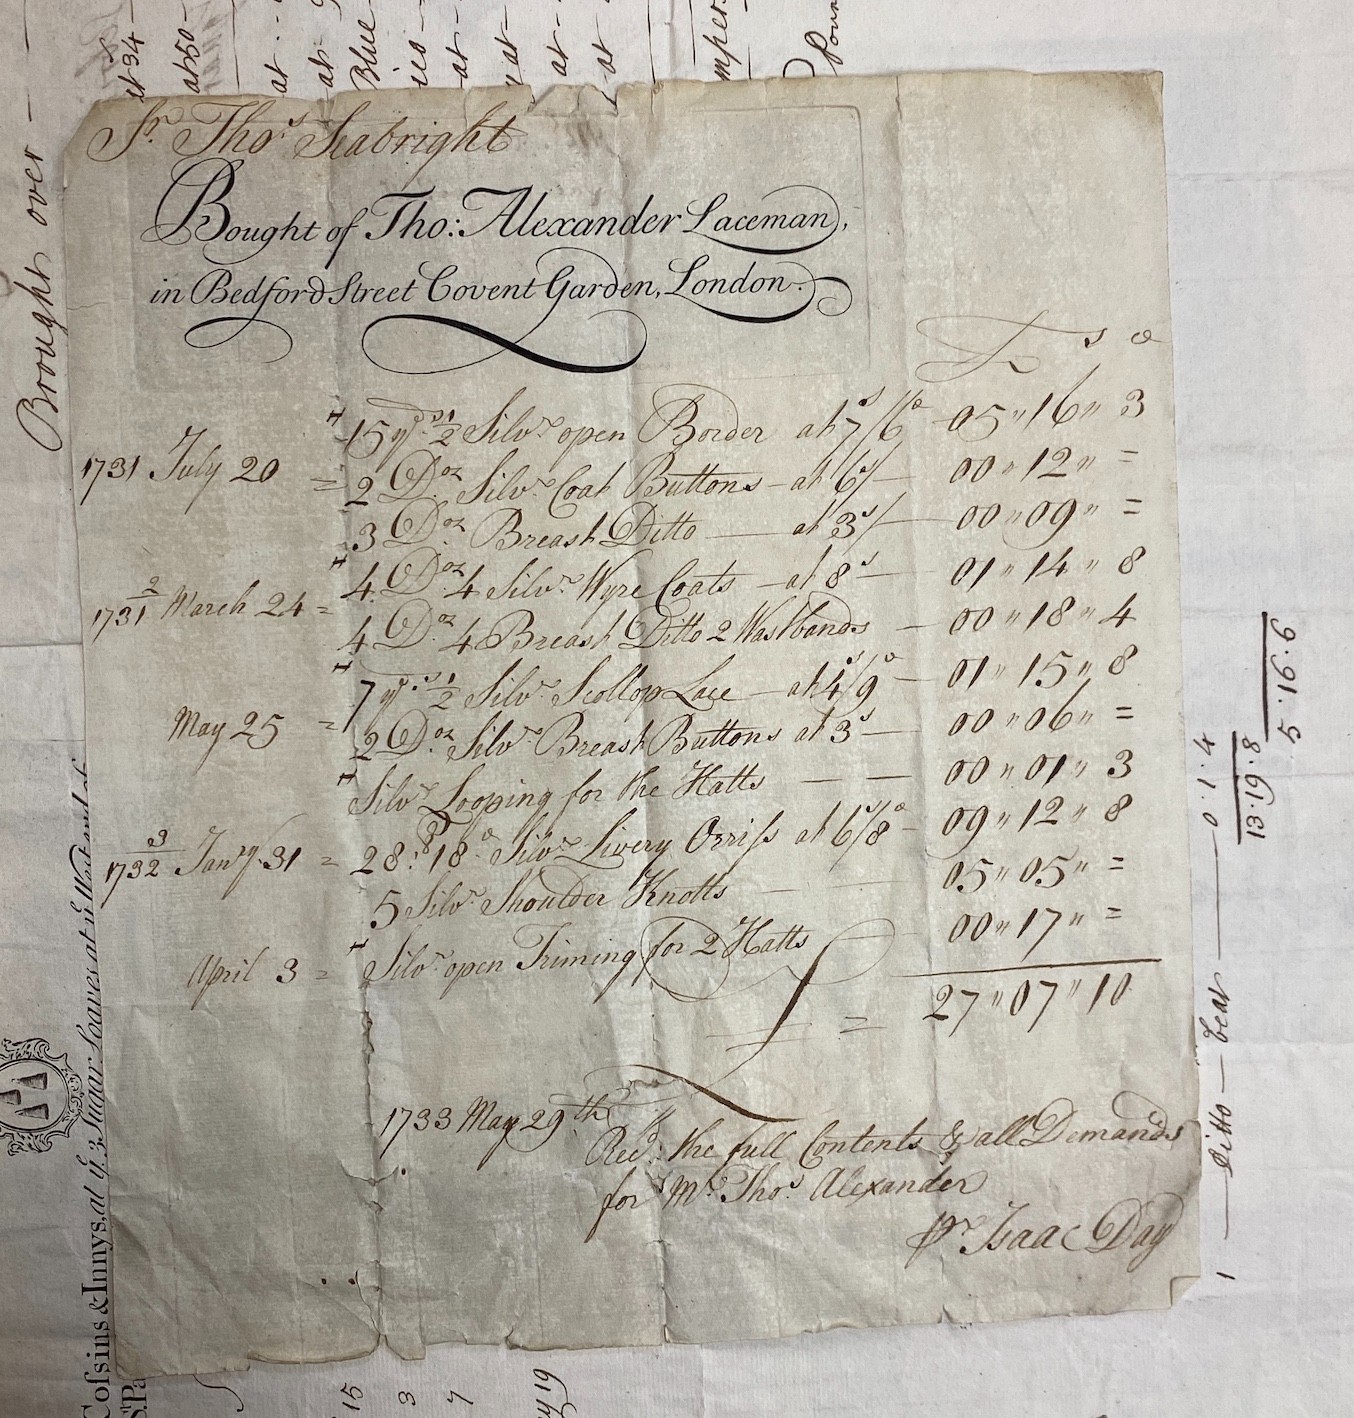 Sr. Thos. Seabright
Bought of Tho: Alexander Laceman,
in Bedford Street Covent Garden, London.
£ s d
1731 July 20 = 15 yds. 1/2 Silvr. open Border at 7s/6d 05 " 16 " 3
2 Doz. Silvr. Coat Buttons at 6s/ 00 " 12 " =
3 Doz. Breast Ditto at 3s/ 00 " 09 " =
1731/2 March 24 = 4 Doz. 4 Silvr. Wyre Coats at 8s 01 " 14 " 8
4 Doz. 4 Breast Ditto 2 Wastbands 00 " 18 " 4
May 25 = 7 yds. 1/2 Silvr. Scollop Lace at 4s/9d 01 " 15 " 8
2 Doz. Silvr. Breast Buttons at 3s 00 " 06 " =
Silvr. Looping for the Hatts 00 " 01 " 3
1732/3 Janry. 31 = 28: 18 Silvr. Livery Orriss at 6s/8d 09 " 12 " 8
5 Silvr. Shoulder Knotts 05 " 05 " =
April 3 = Silvr. open Triming for 2 Hatts 00 " 17 " =
= 27 " 07 " 10
1733 May 29th
Recd. the full Contents & all Demands
for Mr. Thos. Alexander
pr Isaac Day
Brought over
at 34
at 50
at
at
Blue
at
at
at
at
Cossins & Innys, at ye. 3 Sugar Loaves at ye West end of
St. Pa
15
3
7
19
1 Ditto 0.1.4
13.19.8
9.19.5